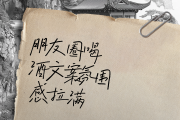 朋友圈喝
酒文案氛围
感拉满